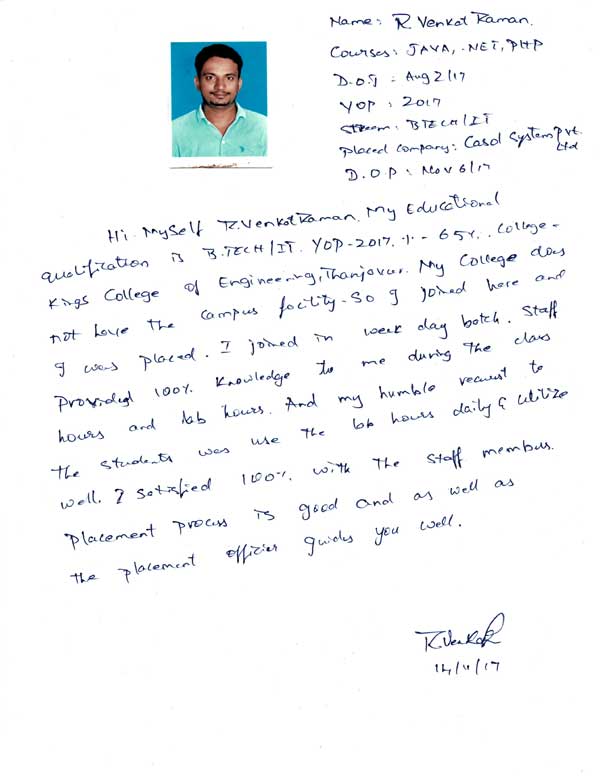 Name: R. Venkat Raman.
Courses: JAVA, .NET, PHP
D.O.J : Aug 2/17
YOP : 2017
Stream: BTECH/IT
Placed Company: Casol System Pvt. Ltd
D.O.P : Nov 6/17
Hi Myself R.Venkat Raman. My Educational
qualification is B.TECH/IT. YOP-2017. %- 65%. College-
Kings College of Engineering, Thanjavur. My College does
not have the campus facility. So I joined here and
I was placed. I joined in week day batch. Staff
Provided 100% Knowledge to me during the class
hours and lab hours. And my humble request to
the students was use the lab hours daily & utilize
well. I satisfied 100% with the staff members.
Placement process is good and as well as
the placement officier guides you well.
R.Venkat
14/11/17